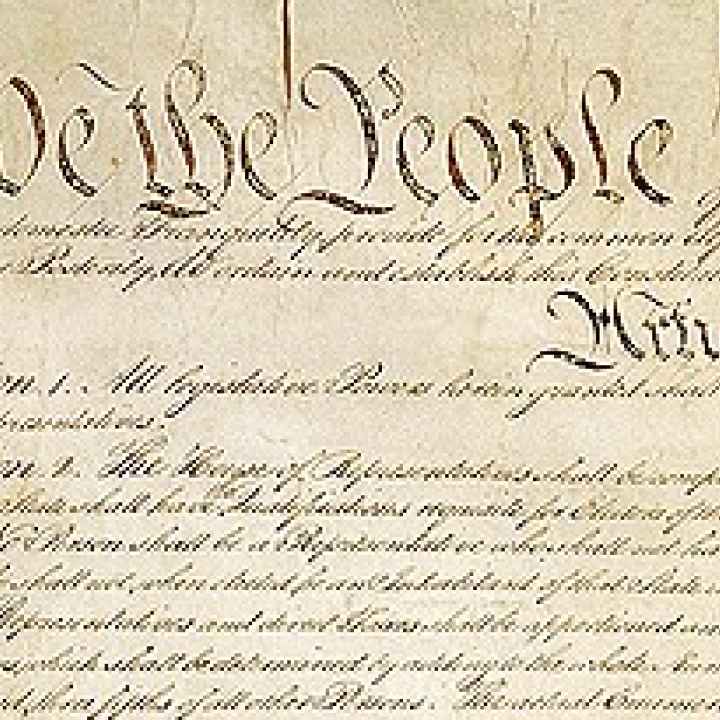 We the People
domestic Tranquility, provide for the common
Posterity, do ordain and establish this Constitu
Arti
on. 1. All legislative Powers herein granted shall
presentatives.
on. 2. The House of Representatives shall be comp
State shall have Qualifications requisite for Electors of
No Person shall be a Representative who shall not ha
shall not, when elected, be an Inhabitant of that State
Representatives and direct Taxes shall be apportioned
which shall be determined by adding to the whole Num
three fifths of all other Persons. The actual Enume